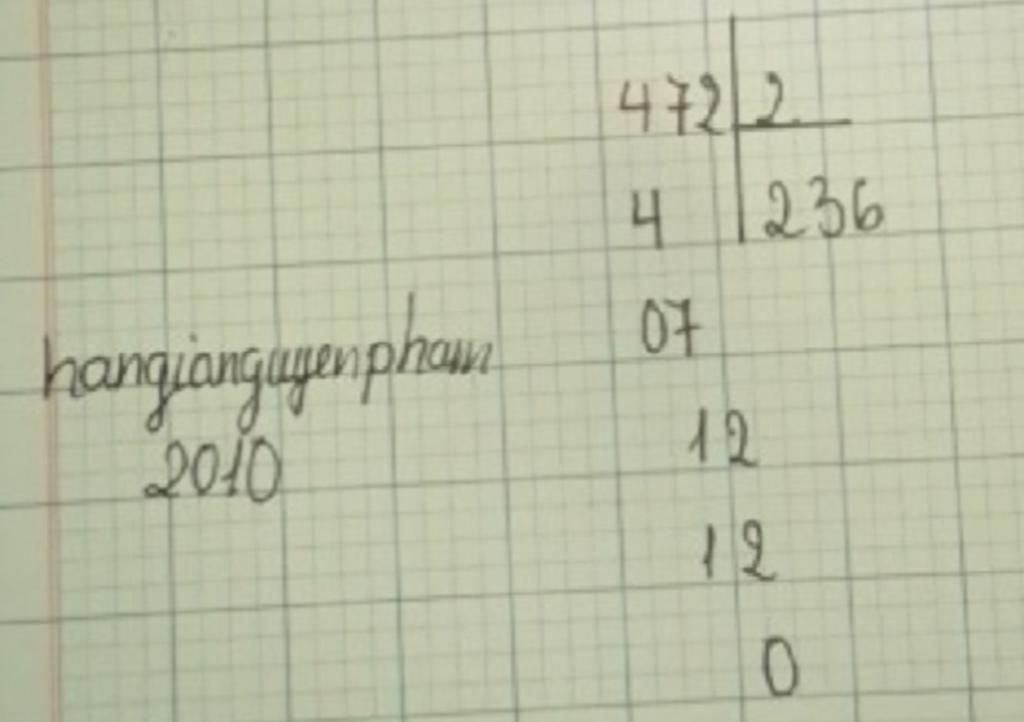 472 2
4 236
07
hangianguyenpham
12
2010
12
0